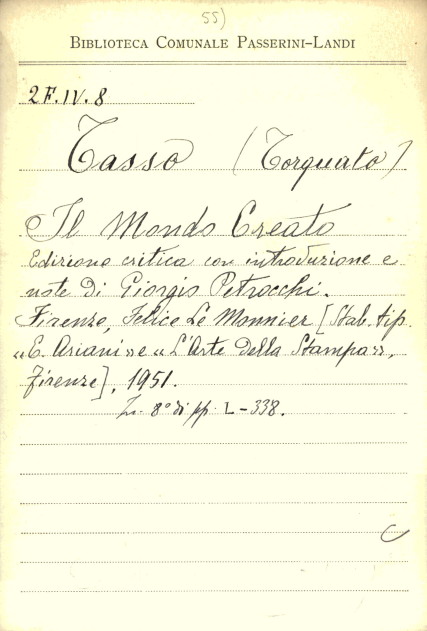 55)
BIBLIOTECA COMUNALE PASSERINI-LANDI
2F.IV.8
Tasso (Torquato)
Il Mondo Creato
Edizione critica con introduzione e
note di Giorgio Petrocchi.
Firenze, Felice Le Monnier [Stab. tip.
«E. Ariani» e «L'Arte della Stampa»,
Firenze], 1951.
In 8° di pp. L-338.